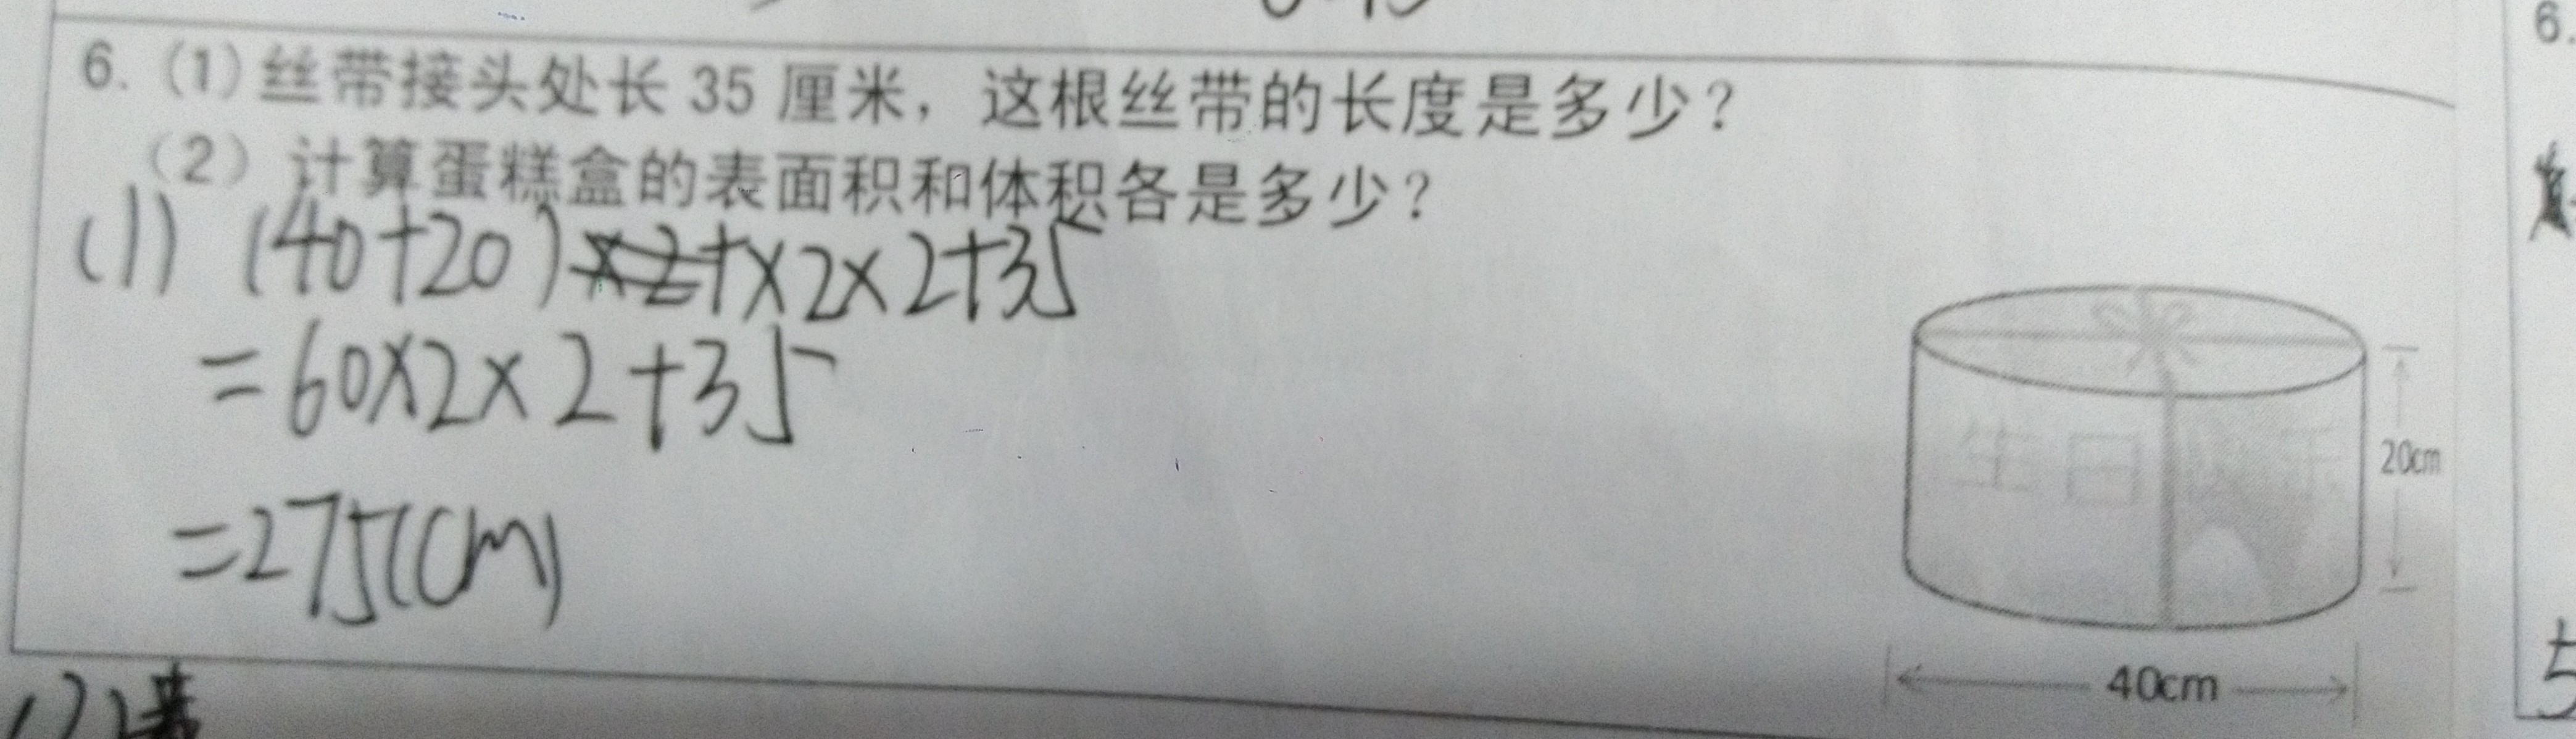 6. (1) 丝带接头处长 35 厘米，这根丝带的长度是多少？
（2） 计算蛋糕盒的表面积和体积各是多少？
(1) (40+20)×2×2+35
=60×2×2+35
=275(cm)
生日快乐
20cm
40cm
6.
5